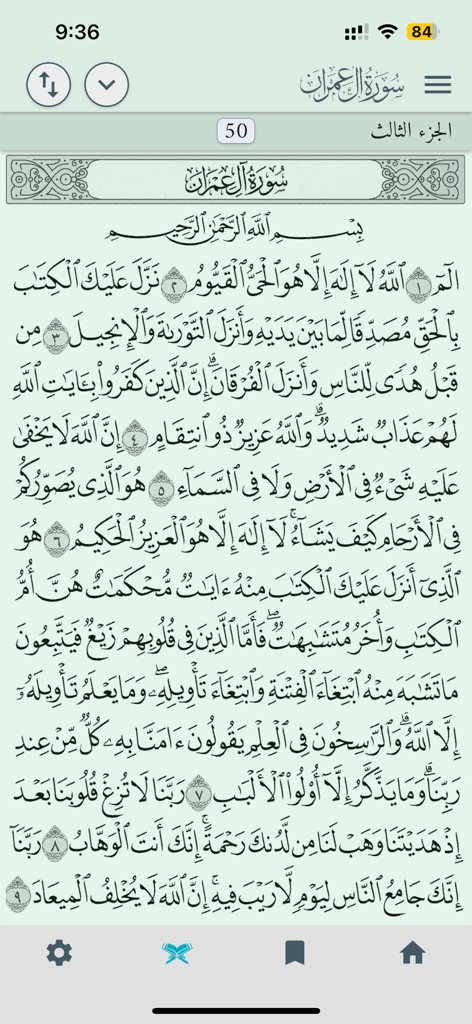 9:36
84
سُورَةُ آلِ عِمْرَانَ
الجزء الثالث
50
سُورَةُ آلِ عِمْرَانَ
بِسْمِ ٱللَّهِ ٱلرَّحْمَٰنِ ٱلرَّحِيمِ
الٓمٓ ١ ٱللَّهُ لَآ إِلَٰهَ إِلَّا هُوَ ٱلْحَىُّ ٱلْقَيُّومُ ٢ نَزَّلَ عَلَيْكَ ٱلْكِتَٰبَ
بِٱلْحَقِّ مُصَدِّقًا لِّمَا بَيْنَ يَدَيْهِ وَأَنزَلَ ٱلتَّوْرَىٰةَ وَٱلْإِنجِيلَ ٣ مِن
قَبْلُ هُدًى لِّلنَّاسِ وَأَنزَلَ ٱلْفُرْقَانَ ۗ إِنَّ ٱلَّذِينَ كَفَرُوا۟ بِـَٔايَٰتِ ٱللَّهِ
لَهُمْ عَذَابٌ شَدِيدٌ ۗ وَٱللَّهُ عَزِيزٌ ذُو ٱنتِقَامٍ ٤ إِنَّ ٱللَّهَ لَا يَخْفَىٰ
عَلَيْهِ شَىْءٌ فِى ٱلْأَرْضِ وَلَا فِى ٱلسَّمَآءِ ٥ هُوَ ٱلَّذِى يُصَوِّرُكُمْ
فِى ٱلْأَرْحَامِ كَيْفَ يَشَآءُ ۚ لَآ إِلَٰهَ إِلَّا هُوَ ٱلْعَزِيزُ ٱلْحَكِيمُ ٦ هُوَ
ٱلَّذِىٓ أَنزَلَ عَلَيْكَ ٱلْكِتَٰبَ مِنْهُ ءَايَٰتٌ مُّحْكَمَٰتٌ هُنَّ أُمُّ
ٱلْكِتَٰبِ وَأُخَرُ مُتَشَٰبِهَٰتٌ ۖ فَأَمَّا ٱلَّذِينَ فِى قُلُوبِهِمْ زَيْغٌ فَيَتَّبِعُونَ
مَا تَشَٰبَهَ مِنْهُ ٱبْتِغَآءَ ٱلْفِتْنَةِ وَٱبْتِغَآءَ تَأْوِيلِهِۦ ۗ وَمَا يَعْلَمُ تَأْوِيلَهُۥٓ
إِلَّا ٱللَّهُ ۗ وَٱلرَّٰسِخُونَ فِى ٱلْعِلْمِ يَقُولُونَ ءَامَنَّا بِهِۦ كُلٌّ مِّنْ عِندِ
رَبِّنَا ۗ وَمَا يَذَّكَّرُ إِلَّآ أُو۟لُوا۟ ٱلْأَلْبَٰبِ ٧ رَبَّنَا لَا تُزِغْ قُلُوبَنَا بَعْدَ
إِذْ هَدَيْتَنَا وَهَبْ لَنَا مِن لَّدُنكَ رَحْمَةً ۚ إِنَّكَ أَنتَ ٱلْوَهَّابُ ٨ رَبَّنَآ
إِنَّكَ جَامِعُ ٱلنَّاسِ لِيَوْمٍ لَّا رَيْبَ فِيهِ ۚ إِنَّ ٱللَّهَ لَا يُخْلِفُ ٱلْمِيعَادَ ٩